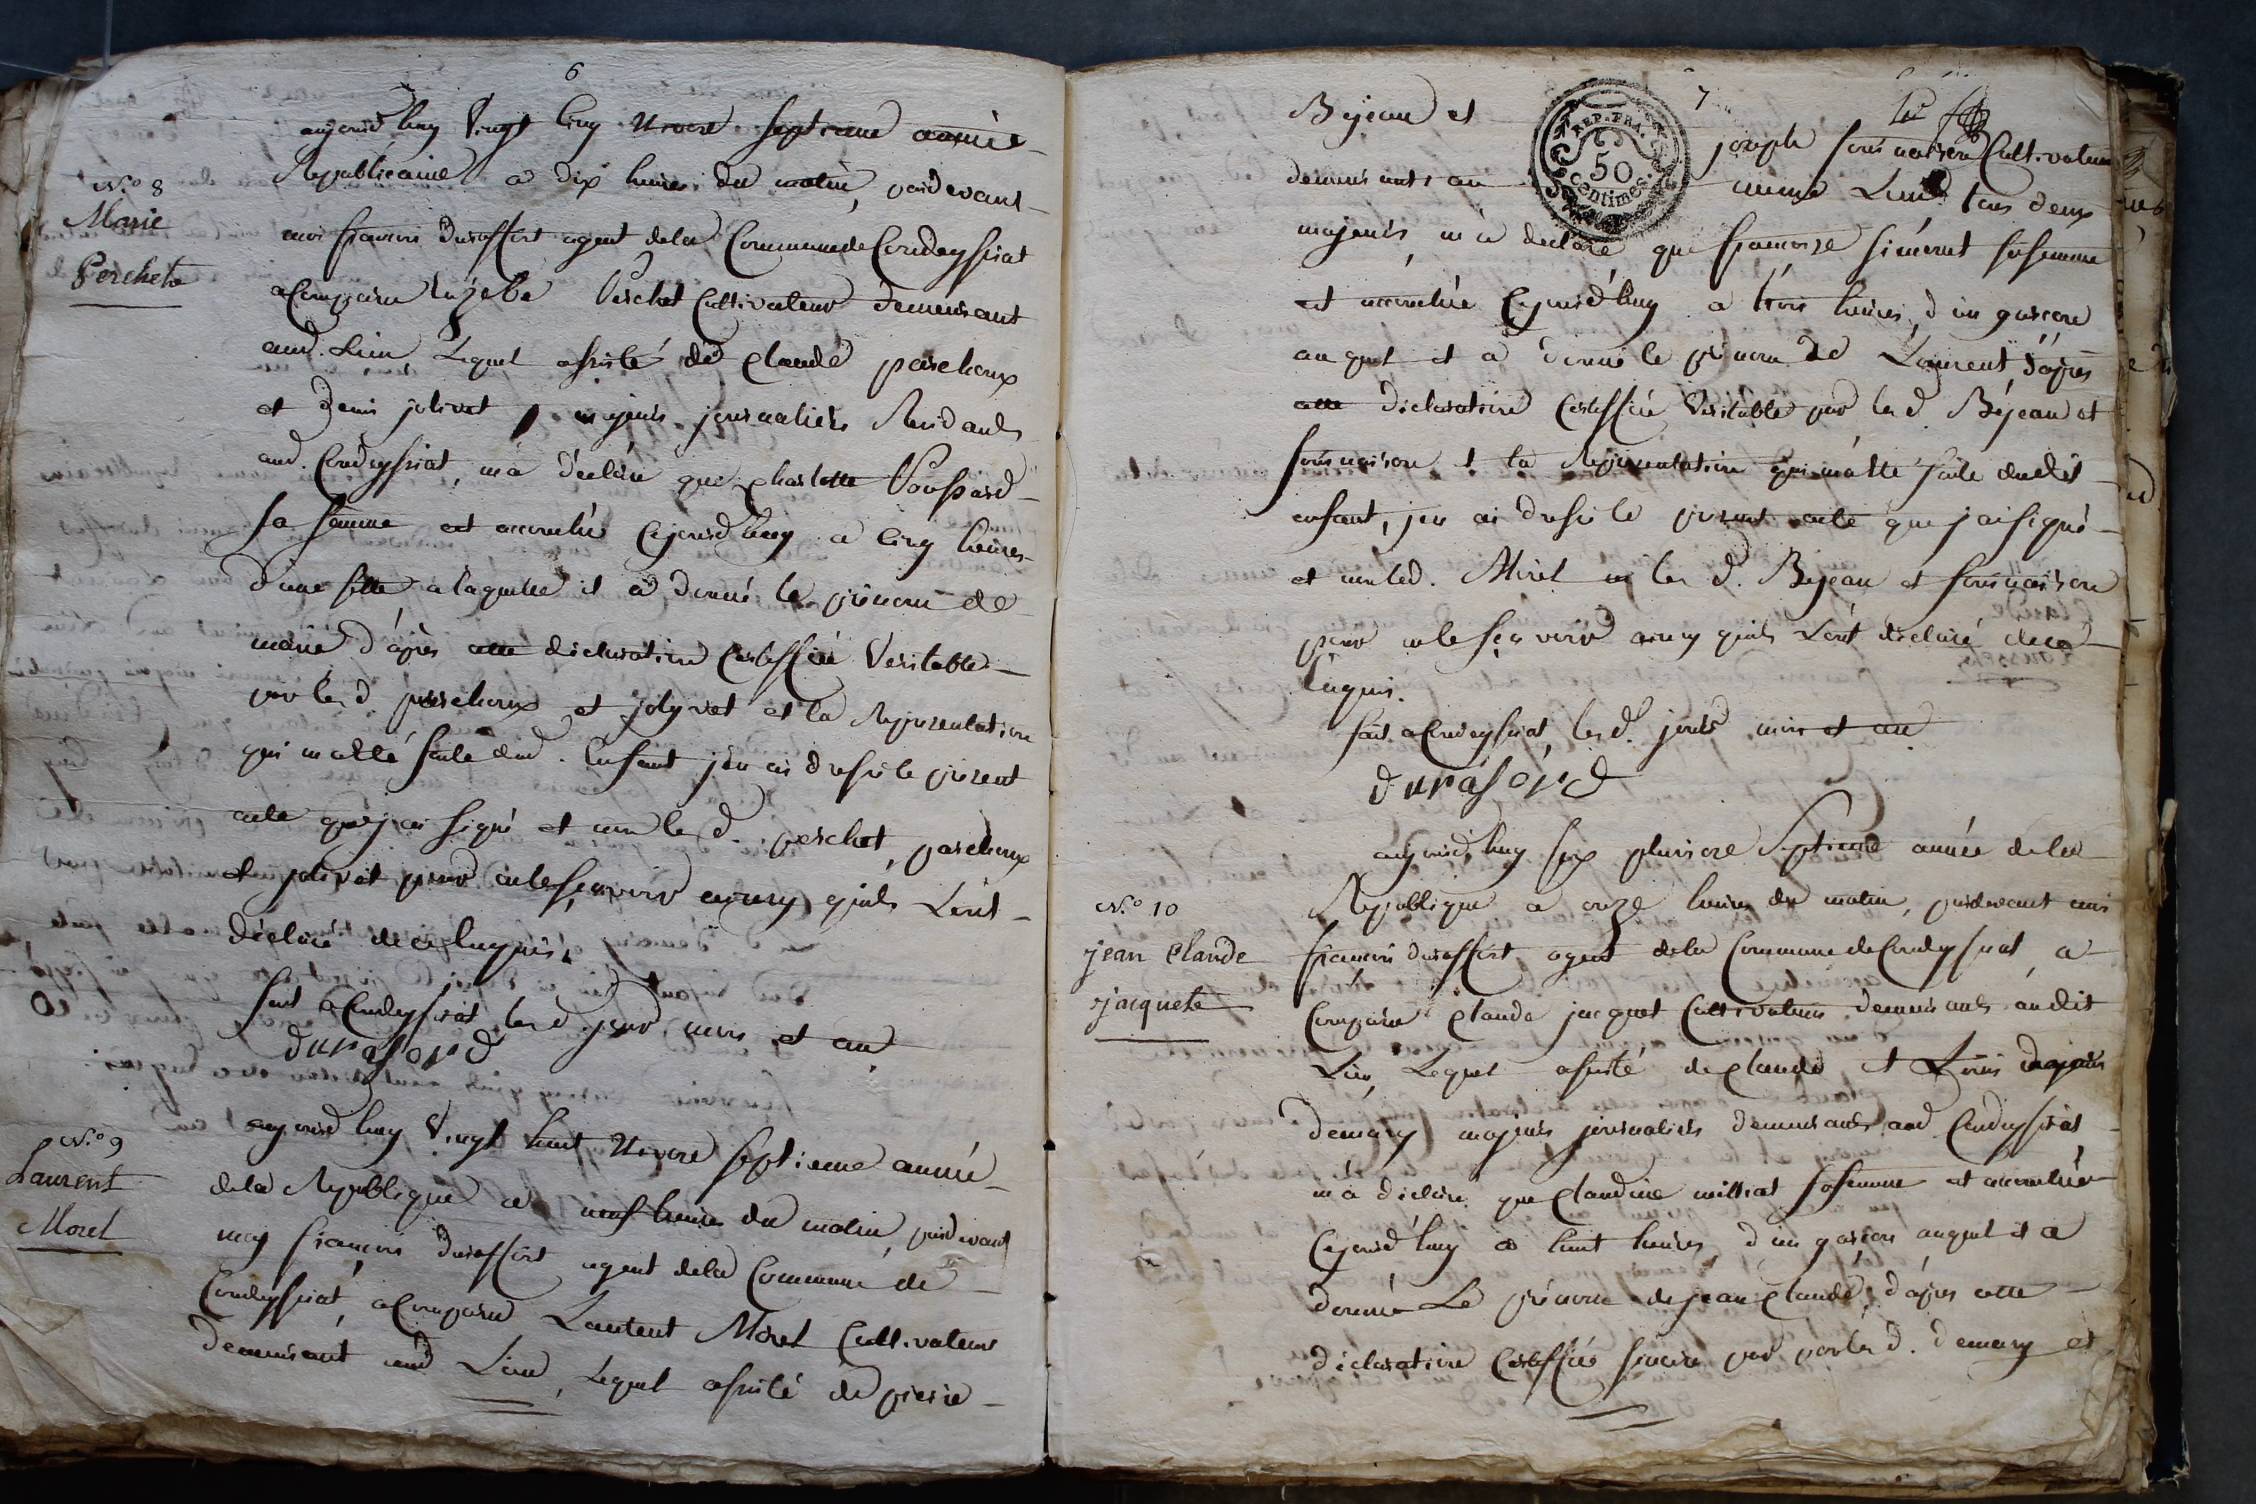 6
aujourd'huy Vingt Cinq Nivose septieme année
Republicaine a dix heures du matin, pardevant
moi francois durasfort agent de la Commune de Condeyssiat
N.o 8
Marie
Perchete
a Comparu Euzebe Perchet Cultivateur demeurant
aud. Lieu Lequel assisté de Claude pascheoux
et denis jolivet majeurs journaliers Residants
aud. Condeyssiat, m'a déclaré que Charlotte Poussard
sa femme est accouchée Cejourd'huy a Cinq heures
d'une fille a laquelle il a donné le prénom de
marie d'après cette déclaration Certiffiée Veritable
par les d pascheoux et jolyvet et la Representation
qui m'a été faite dud. Enfant j'en ai dressé le présent
acte que j'ai signé et non les d. perchet, pascheoux
et jolivet pour ne le sçavoir ainsy qu'ils L'ont
déclaré de ce Enquis.
fait a Condeyssiat, les d. jour mois et an
durasord
N.o 9
Laurent
Morel
aujourd'huy Vingt huit Nivose septieme année
de la Republique a neuf heures du matin, pardevant
moy francois durasfort agent de la Commune de
Condeyssiat, a Comparu Laurent Morel Cultivateur
demeurant aud Lieu, Lequel assisté de pierre
7
Bejean et joseph fournaison Cultivateurs
REP. FRA.
50
centimes.
demeurants au même Lieu tous deux
majeurs, m'a declaré que francoise simonet sa femme
est accouchée Cejourd'huy a trois heures, d'un garcon
auquel il a donné le prénom de Laurent d'après
cette déclaration Certiffiée Veritable par les d. Béjean et
fournaison et la Representation qui m'a été faite dudit
enfant, j'en ai dressé le present acte que j'ai signé
et non led. Morel ni les d. Bejean et fournaison
pour ne le sçavoir ainsy quils L'ont déclaré de ce
Enquis.
fait a Condeyssiat, les d. jour mois et an
durasord
N.o 10
jean Claude
jacquete
aujourd'huy six pluviose Septieme année de la
Republique a onze heures du matin, pardevant moi
francois durasfort agent de la Commune de Condeyssiat, a
Comparu Claude jacquet Cultivateur demeurants audit
Lieu, Lequel assisté de Claude et Louis
demary majeurs journaliers demeurants aud Condeyssiat
m'a déclaré que Claudine milliat sa femme est accouchée
Cejourd'huy a huit heures, d'un garcon auquel il a
donné Le prénom de jean Claude, d'après cette
déclaration Certiffiée sincere par par les d. demary et